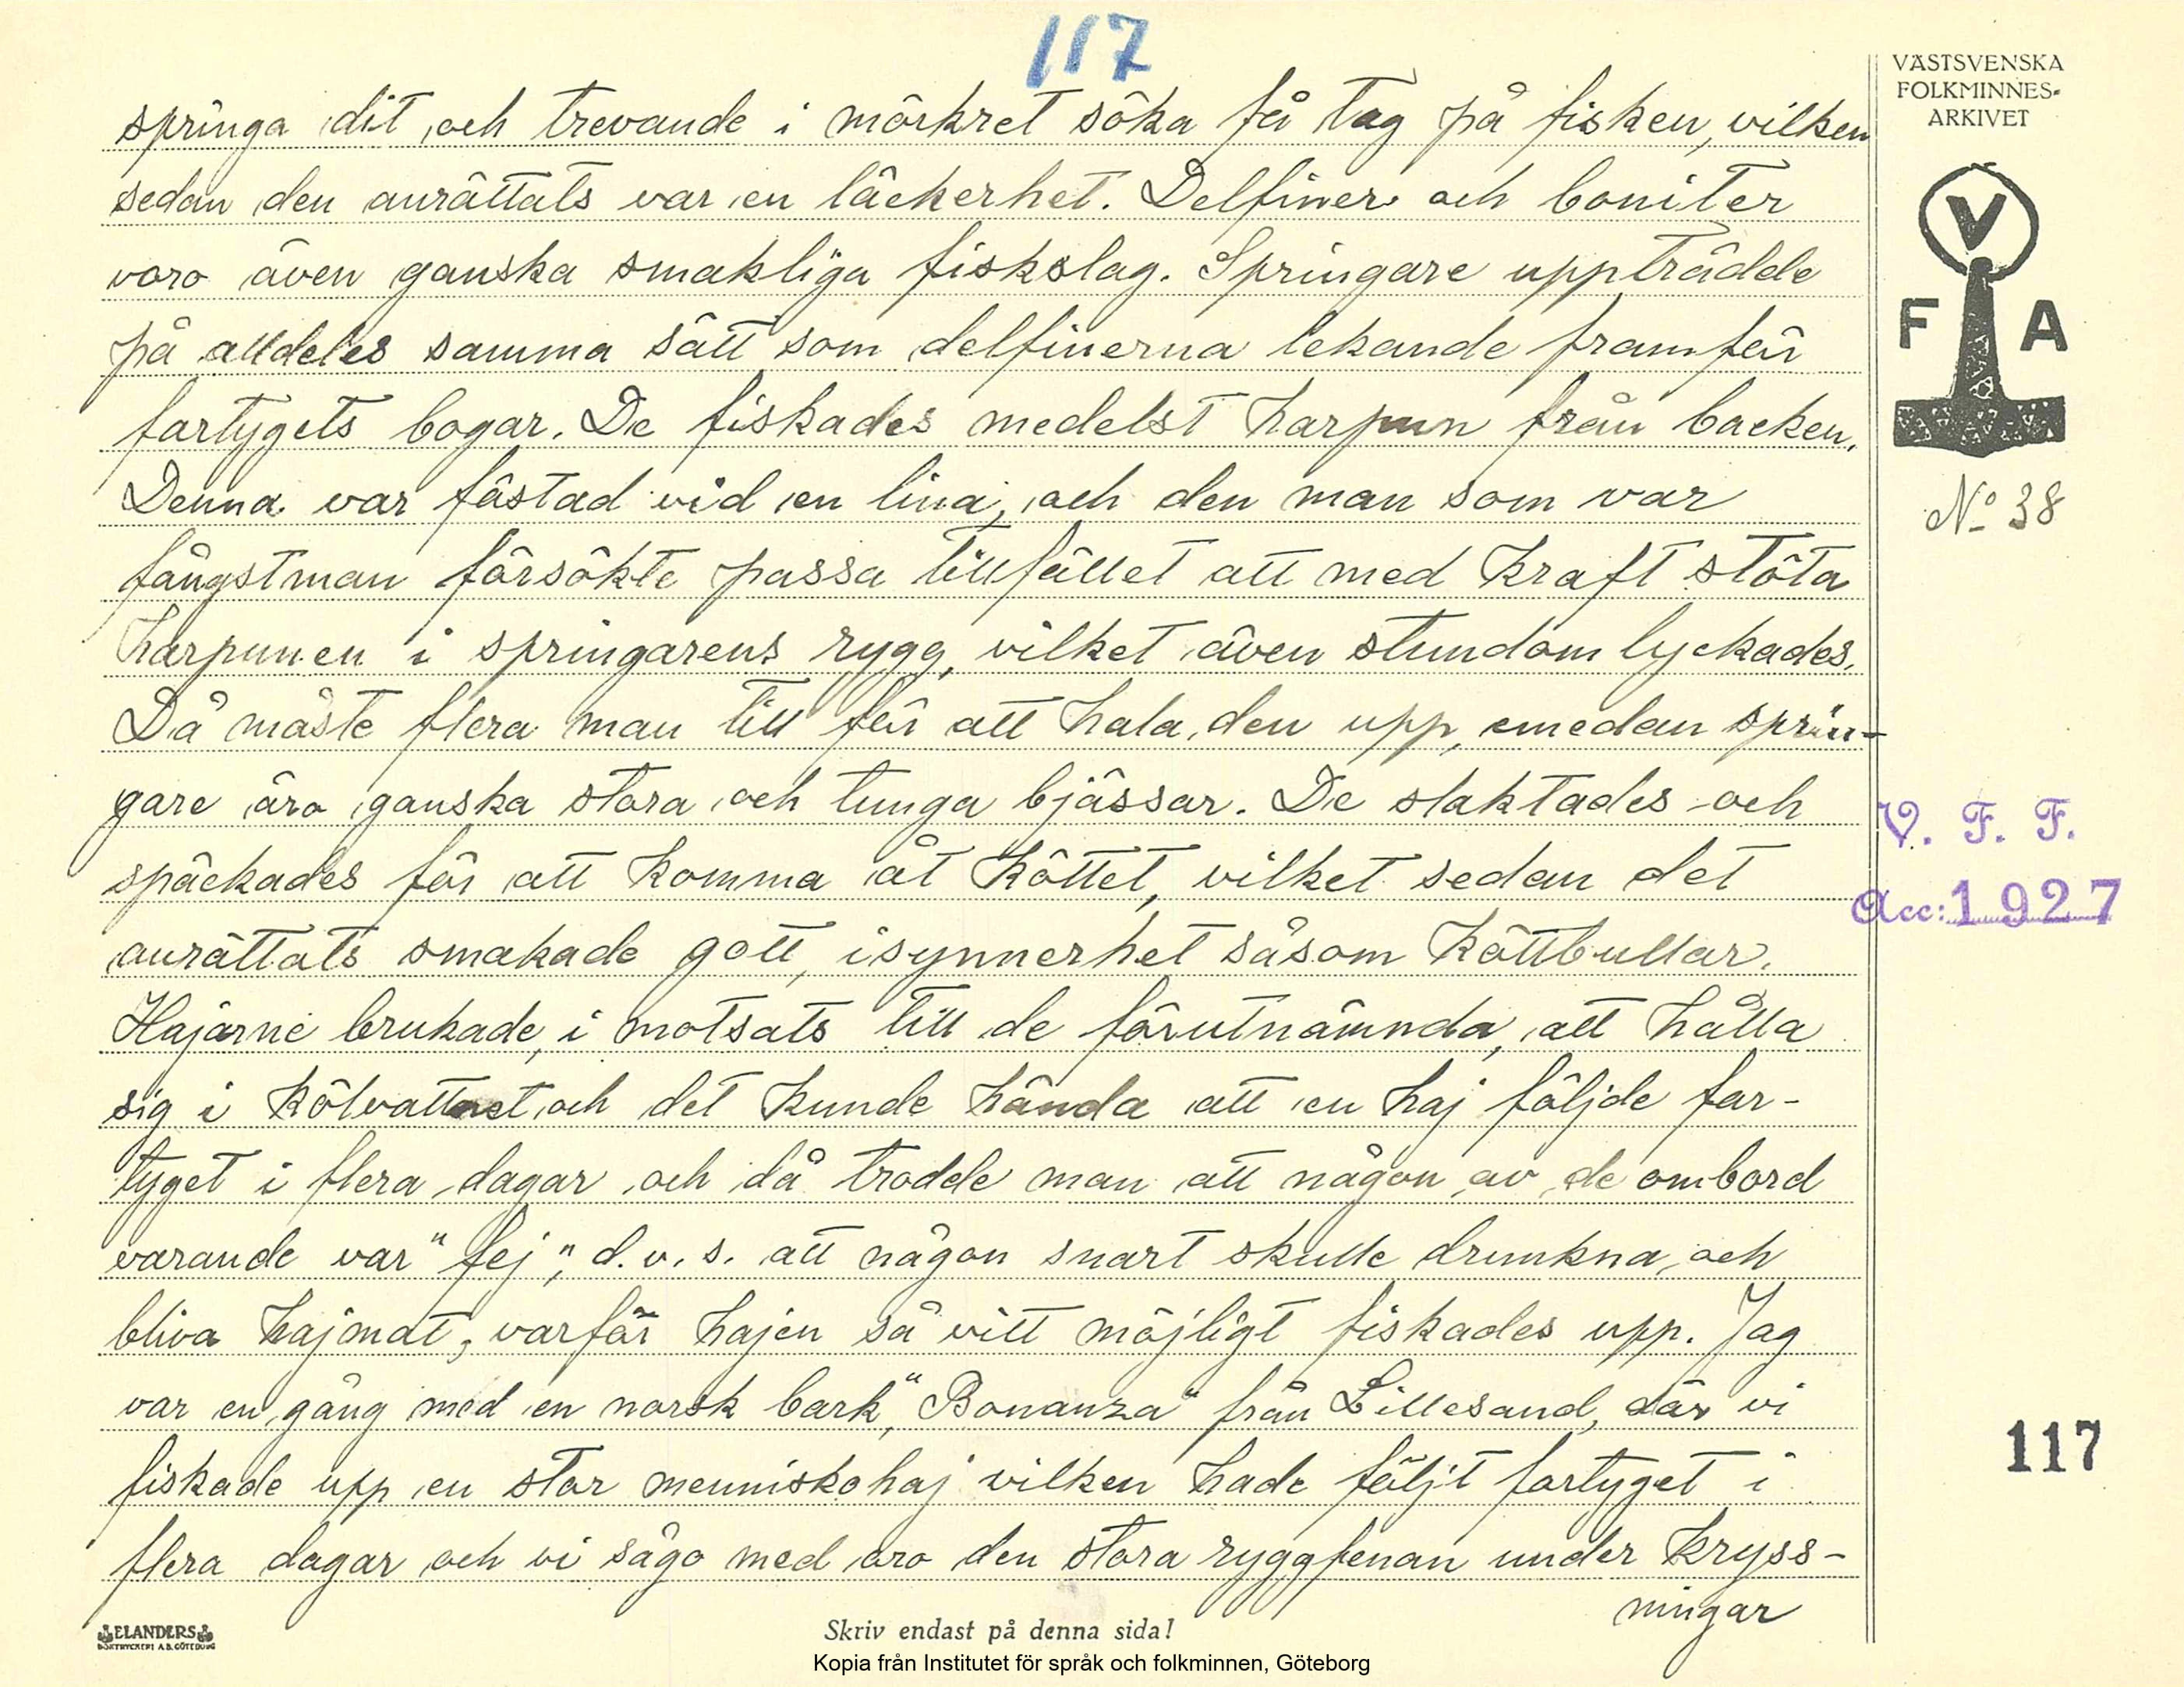 117
VÄSTSVENSKA
FOLKMINNES-
ARKIVET
V
F A
No 38
springa dit och trevande i mörkret söka få tag på fisken, vilken
sedan den anrättats var en läckerhet. Delfiner och boniter
voro även ganska smakliga fiskslag. Springare uppträdde
på alldeles samma sätt som delfinerna lekande framför
fartygets bogar. De fiskades medelst harpun från backen.
Denna var fästad vid en lina, och den man som var
fångstman försökte passa tillfället att med kraft stöta
harpunen i springarens rygg, vilket även stundom lyckades.
Då måste flera man till för att hala den upp, emedan sprin-
gare äro ganska stora och tunga bjässar. De slaktades och
späckades för att komma åt köttet, vilket sedan det
anrättats smakade gott, isynnerhet såsom köttbullar.
Hajarne brukade, i motsats till de förutnämnda, att hålla
sig i kölvattnet och det kunde hända att en haj följde far-
tyget i flera dagar och då trodde man att någon av de ombord
varande var "fej", d.v.s. att någon snart skulle drunkna, och
bliva hajmat, varför hajen så vitt möjligt fiskades upp. Jag
var en gång med en norsk bark, "Bonanza" från Lillesand, där vi
fiskade upp en stor menniskohaj vilken hade följt fartyget i
flera dagar och vi sågo med oro den stora ryggfenan under kryss-
ningar
V. F. F.
Acc: 1927
117
ELANDERS
BOKTRYCKERI A.B. GÖTEBORG
Skriv endast på denna sida!
Kopia från Institutet för språk och folkminnen, Göteborg